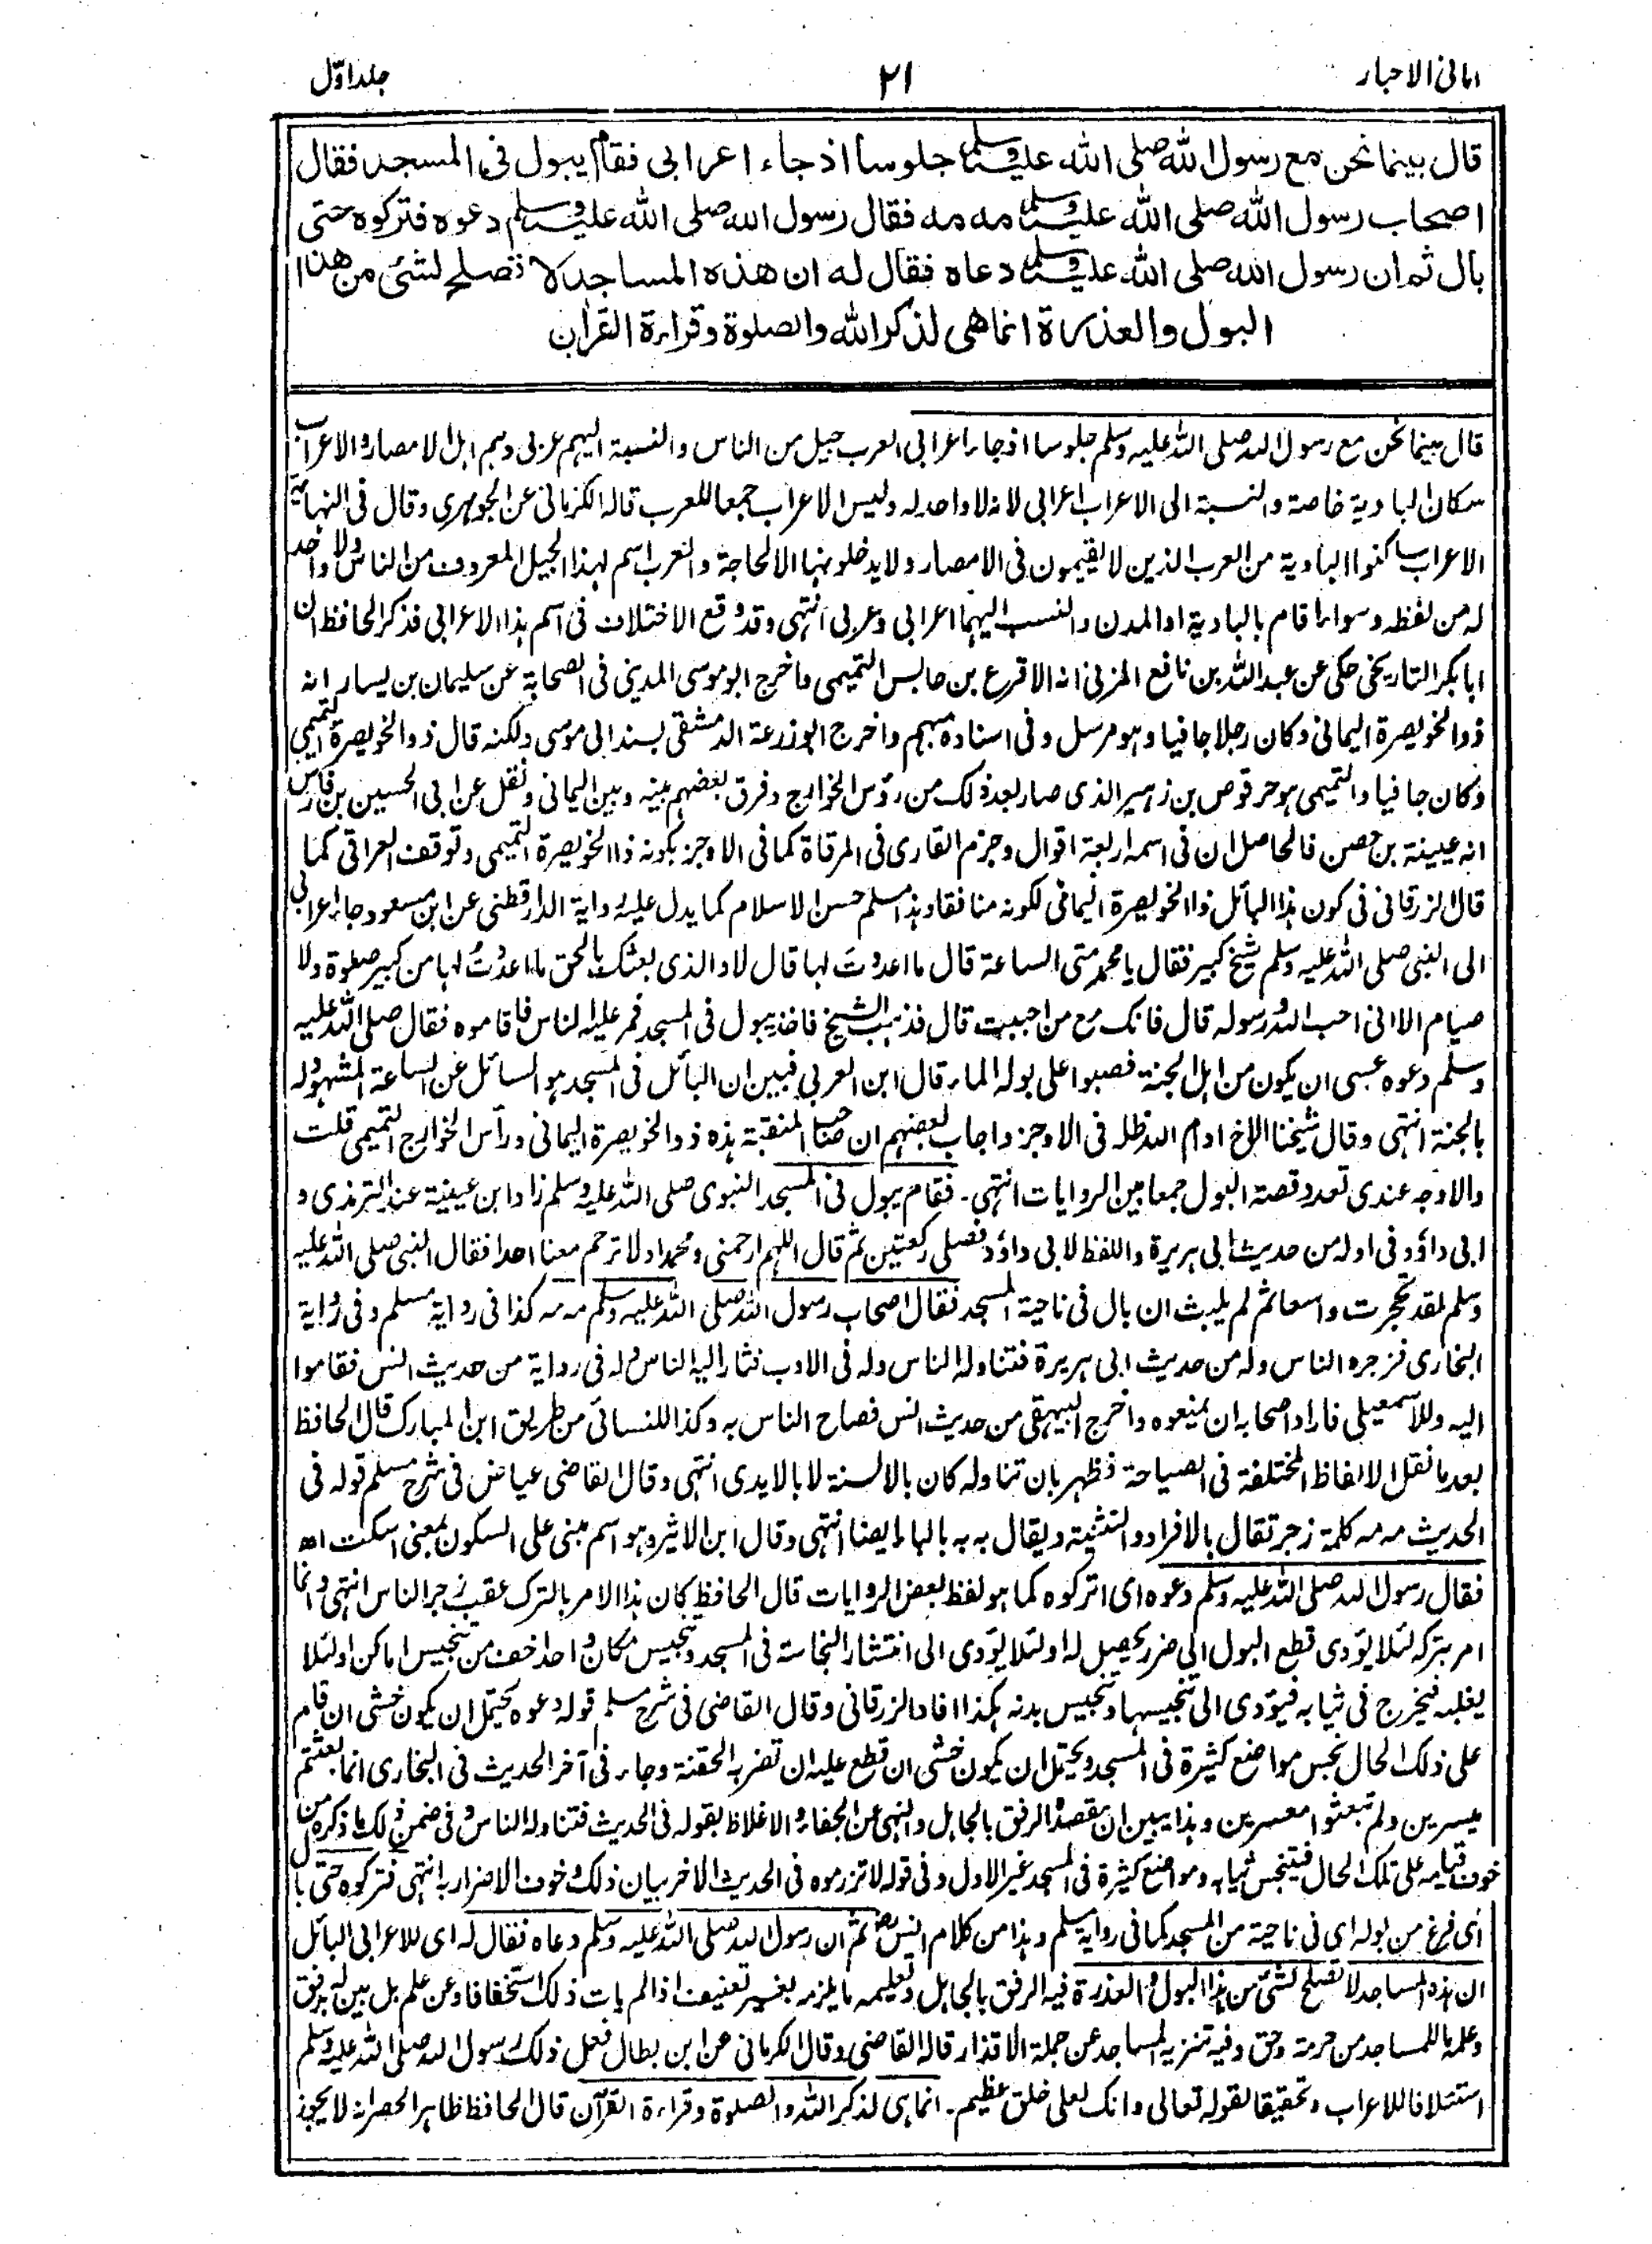 امانی الاحبار
۲۱
جلد اوّل
قال بينما نحن مع رسول الله صلى الله عليه وسلم جلوسا اذ جاء اعرابى فقام يبول فى المسجد فقال
اصحاب رسول الله صلى الله عليه وسلم مه مه فقال رسول الله صلى الله عليه وسلم دعوه فتركوه حتى
بال ثم ان رسول الله صلى الله عليه وسلم دعاه فقال له ان هذه المساجد لا تصلح لشئ من هذا
البول والعذرة انما هى لذكر الله والصلوة وقراءة القران
قال بينما نحن مع رسول الله صلى الله عليه وسلم جلوسا اذ جاء اعرابى العرب جيل من الناس والنسبة اليهم عربى وهم اهل الامصار والاعراب
سكان البادية خاصة والنسبة الى الاعراب اعرابى لانه لا واحد له وليس الاعراب جمعا للعرب قاله الكرمانى عن الجوهرى وقال فى النهاية
الاعراب ساكنوا البادية من العرب الذين لا يقيمون فى الامصار ولا يدخلونها الا لحاجة والعرب اسم لهذا الجيل المعروف من الناس ولا واحد
له من لفظه وسواء اقام بالبادية او المدن والنسب اليهما اعرابى وعربى انتهى وقد وقع الاختلاف فى اسم هذا الاعرابى فذكر الحافظ ان
ابا بكر التاريخى حكى عن عبد الله بن نافع المزنى انه الاقرع بن حابس التميمى واخرج ابو موسى المدينى فى الصحابة عن سليمان بن يسار انه
ذو الخويصرة اليمانى وكان رجلا جافيا وهو مرسل وفى اسناده مبهم واخرج ابو زرعة الدمشقى بسند ابى موسى ولكنه قال ذو الخويصرة التميمى
وكان جافيا والتميمى هو حرقوص بن زهير الذى صار بعد ذلك من رؤس الخوارج وفرق بعضهم بينه وبين اليمانى ونقل عن ابى الحسين بن فارس
انه عيينة بن حصن فالحاصل ان فى اسمه اربعة اقوال وجزم القارى فى المرقاة كما فى الاوجز بكونه ذا الخويصرة التميمى وتوقف العراقى كما
قال الزرقانى فى كون هذا البائل ذا الخويصرة اليمانى لكونه منافقا وهذا مسلم حسن الاسلام كما يدل عليه رواية الدارقطنى عن ابن مسعود جاء اعرابى
الى النبى صلى الله عليه وسلم شيخ كبير فقال يا محمد متى الساعة قال ما اعددتَ لها قال لا والذى بعثك بالحق ما اعددتُ لها من كبير صلوة ولا
صيام الا انى احب الله ورسوله قال فانك مع من احببت قال فذهب الشيخ فاخذ يبول فى المسجد فمر عليه الناس فاقاموه فقال صلى الله عليه
وسلم دعوه عسى ان يكون من اهل الجنة فصبوا على بوله الماء قال ابن العربى فبين ان البائل فى المسجد هو السائل عن الساعة المشهود له
بالجنة انتهى وقال شيخنا الاخ ادام الله ظله فى الاوجز واجاب بعضهم ان صاحب المنقبة هذه ذو الخويصرة اليمانى ورأس الخوارج التميمى قلت
والاوجه عندى تعدد قصة البول جمعا بين الروايات انتهى۔ فقام يبول فى المسجد النبوى صلى الله عليه وسلم زاد ابن عيينة عند الترمذى و
ابى داؤد فى اوله من حديث ابى هريرة واللفظ لابى داؤد فصلى ركعتين ثم قال اللهم ارحمنى ومحمدا ولا ترحم معنا احدا فقال النبى صلى الله عليه
وسلم لقد تحجرت واسعا ثم لم يلبث ان بال فى ناحية المسجد فقال اصحاب رسول الله صلى الله عليه وسلم مه مه كذا فى رواية مسلم وفى رواية
البخارى فزجره الناس وله من حديث ابى هريرة فتناوله الناس وله فى الادب فثار اليه الناس وله فى رواية من حديث انس فقاموا
اليه وللاسمعيلى فاراد اصحابه ان يمنعوه واخرج البيهقى من حديث انس فصاح الناس به وكذا للنسائى من طريق ابن المبارك قال الحافظ
بعد ما نقل الالفاظ المختلفة فى الصياحة فظهر بان تناوله كان بالالسنة لا بالايدى انتهى وقال القاضى عياض فى شرح مسلم قوله فى
الحديث مه مه كلمة زجر تقال بالافراد والتثنية ويقال به به بالباء ايضا انتهى وقال ابن الاثير وهو اسم مبنى على السكون بمعنى اسكت اھ
فقال رسول الله صلى الله عليه وسلم دعوه اى اتركوه كما هو لفظ بعض الروايات قال الحافظ كان هذا الامر بالترك عقب زجر الناس انتهى وانما
امر بتركه لئلا يؤدى قطع البول الى ضرر يحصل له او لئلا يؤدى الى انتشار النجاسة فى المسجد وتنجيس مكان واحد اخف من تنجيس اماكن او لئلا
يغلبه فيخرج فى ثيابه فيؤدى الى تنجيسها وتنجيس بدنه هكذا افاد الزرقانى وقال القاضى فى شرح مسلم قوله دعوه يحتمل ان يكون خشى ان قام
على ذلك الحال نجس مواضع كثيرة فى المسجد ويحتمل ان يكون خشى ان قطع عليه ان تضر به الحقنة وجاء فى آخر الحديث فى البخارى انما بعثتم
ميسرين ولم تبعثوا معسرين وهذا يبين ان مقصده الرفق بالجاهل والنهى عن الجفاء والاغلاظ بقوله فى الحديث فتناوله الناس وفى ضمن ذلك ما ذكره من
خوف قيامه على تلك الحال فيتنجس ثيابه ومواضع كثيرة فى المسجد غير الاول وفى قوله لا تزرموه فى الحديث الاخر بيان ذلك وخوف الاضرار به انتهى فتركوه حتى بال
اى فرغ من بوله اى فى ناحية من المسجد كما فى رواية مسلم وهذا من كلام انس ثم ان رسول الله صلى الله عليه وسلم دعاه فقال له اى للاعرابى البائل
ان هذه المساجد لا تصلح لشئ من هذا البول والعذرة فيه الرفق بالجاهل وتعليمه ما يلزمه بغير تعنيف اذا لم يات ذلك استخفافا وعن علم بل بين له برفق
وعلمه ما للمساجد من حرمة وحق وفيه تنزيه المساجد عن جملة الاقذار قاله القاضى وقال الكرمانى عن ابن بطال فعل ذلك رسول الله صلى الله عليه وسلم
استئلافا للاعراب وتحقيقا لقوله تعالى وانك لعلى خلق عظيم۔ انما هى لذكر الله والصلوة وقراءة القرآن قال الحافظ ظاهر الحصر انه لا يجوز